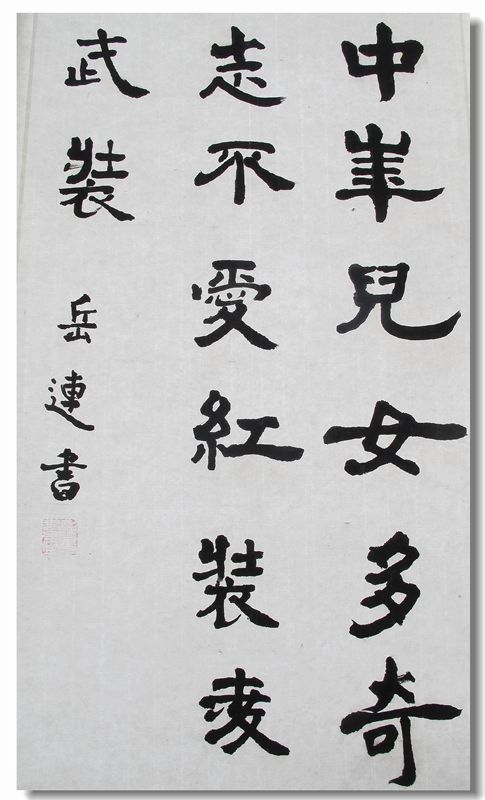 中華兒女多奇
志不愛紅裝愛
武裝
岳連書